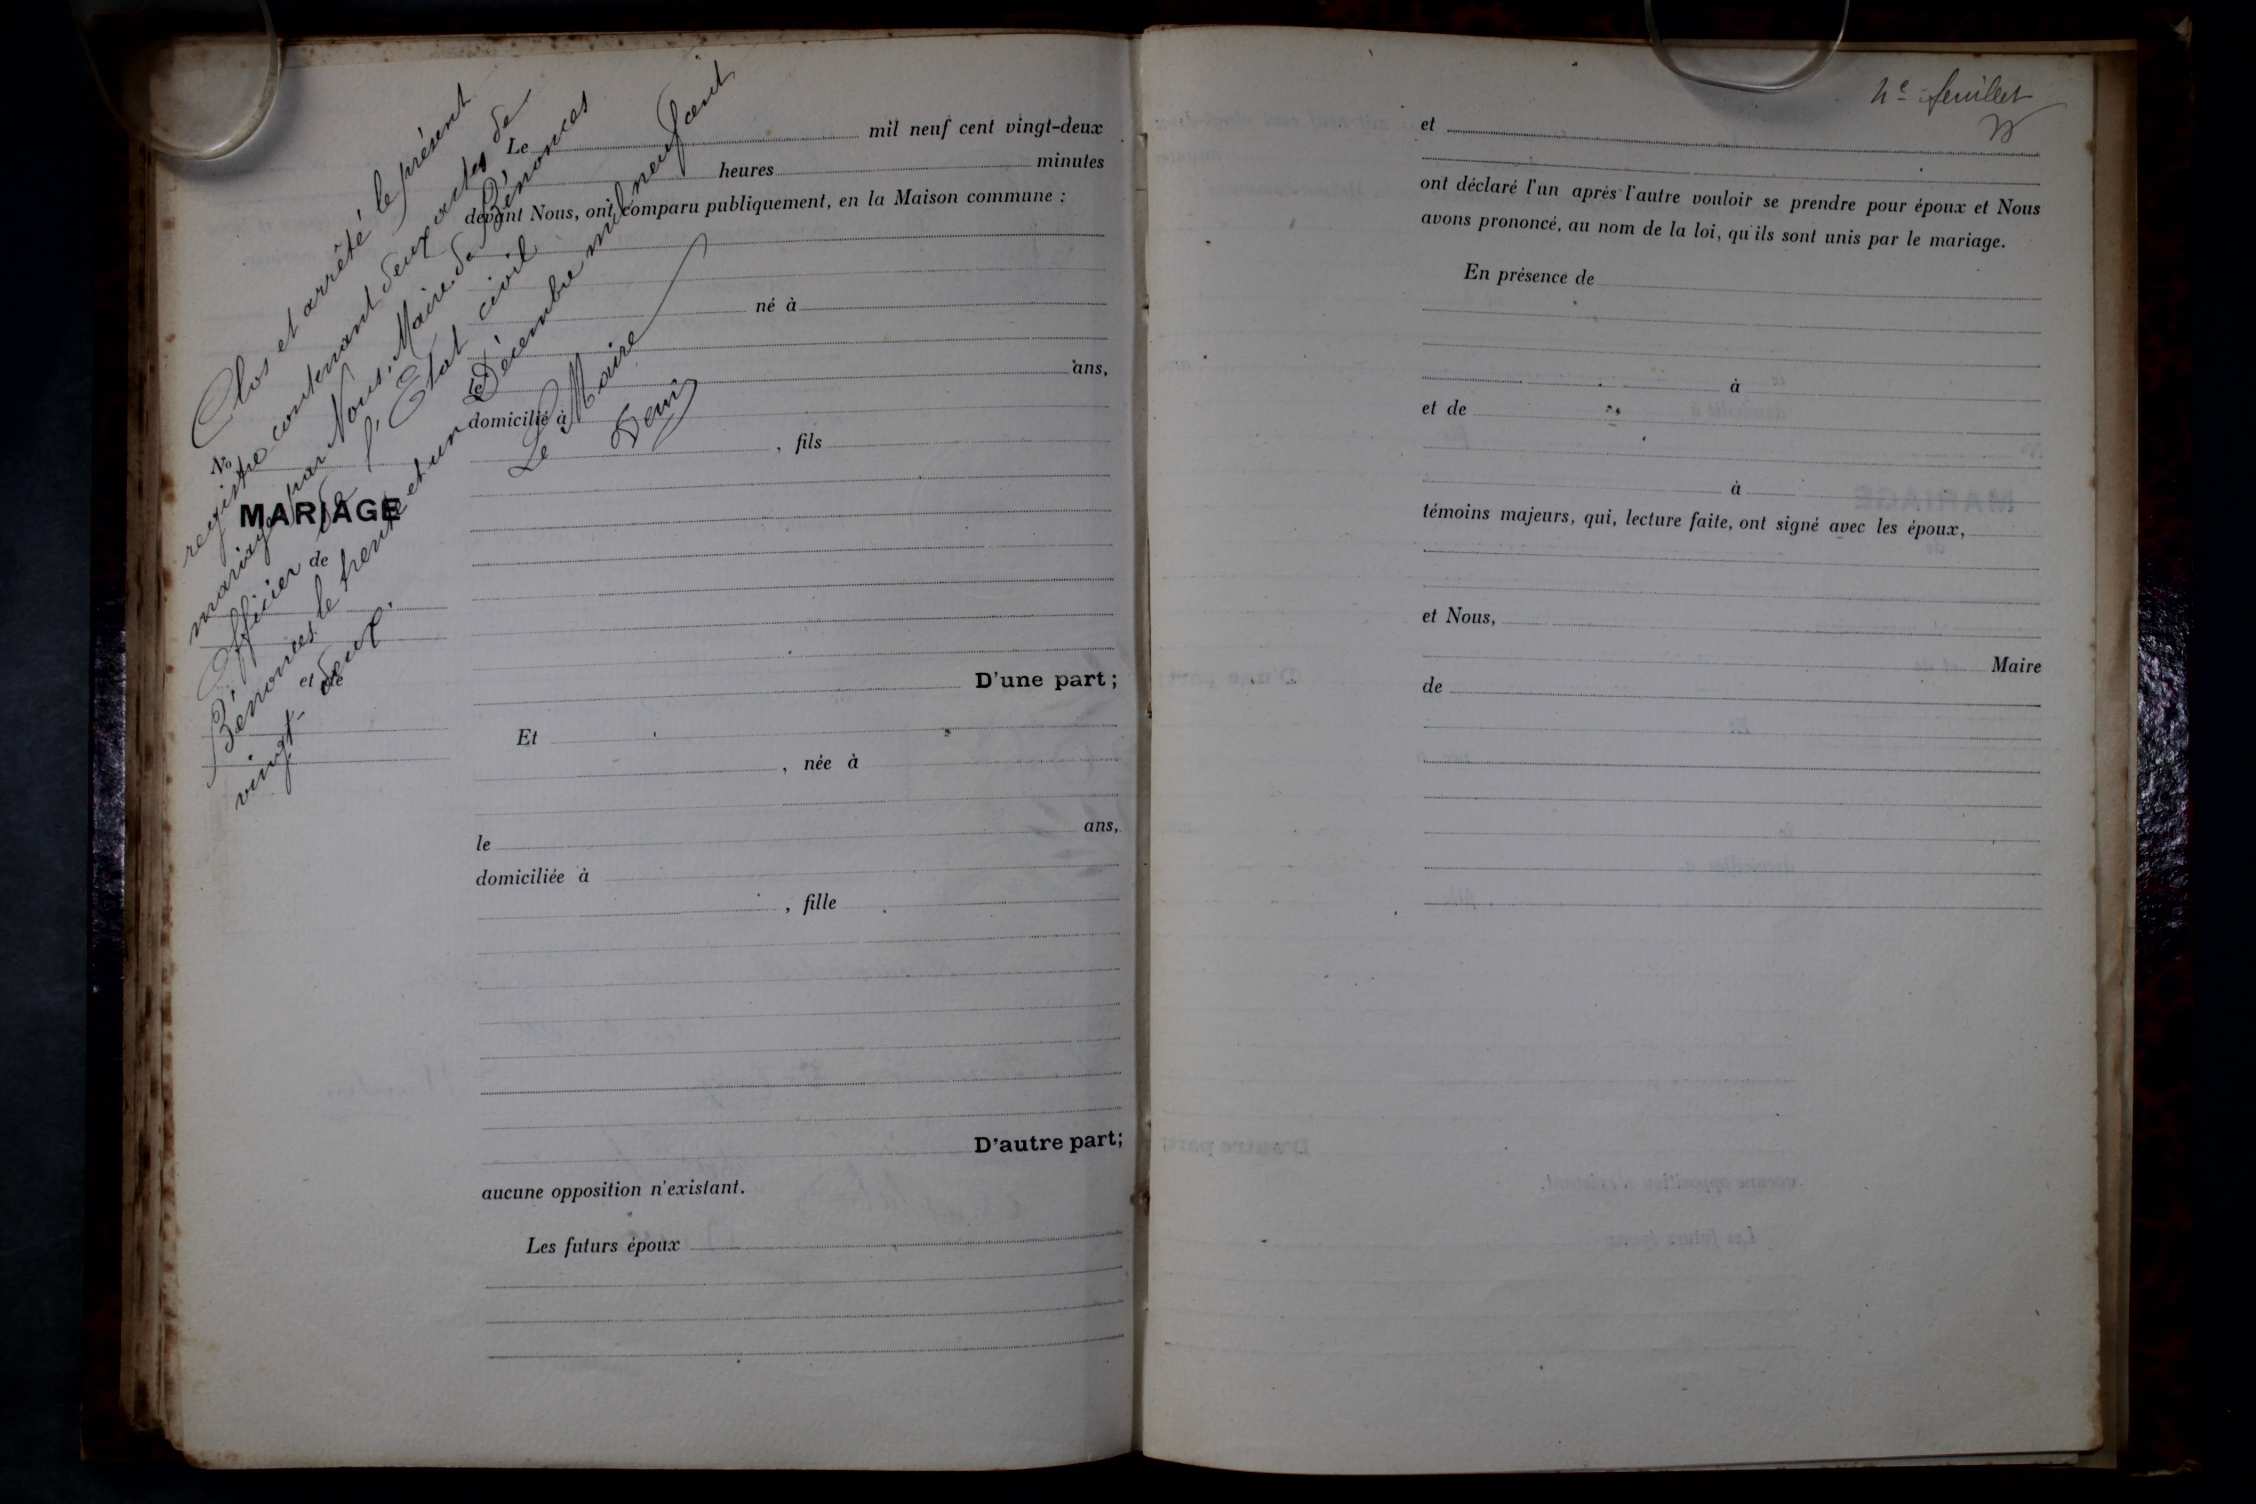 Clos et arrêté le présent
registre contenant deux actes de
mariage par Nous, Maire de Bénonces
Officier de l'Etat civil
Bénonces le trente et un Décembre mil neuf cent
vingt-deux.
Le Maire
Le mil neuf cent vingt-deux
heures minutes
devant Nous, ont comparu publiquement, en la Maison commune :
né à
le ans,
domicilié à
, fils
No
MARIAGE
de
et de
D'une part ;
Et
, née à
le ans,
domiciliée à
, fille
D'autre part;
aucune opposition n'existant.
Les futurs époux
feuillet
et
ont déclaré l'un après l'autre vouloir se prendre pour époux et Nous
avons prononcé, au nom de la loi, qu'ils sont unis par le mariage.
En présence de
à
et de
à
témoins majeurs, qui, lecture faite, ont signé avec les époux,
et Nous,
Maire
de